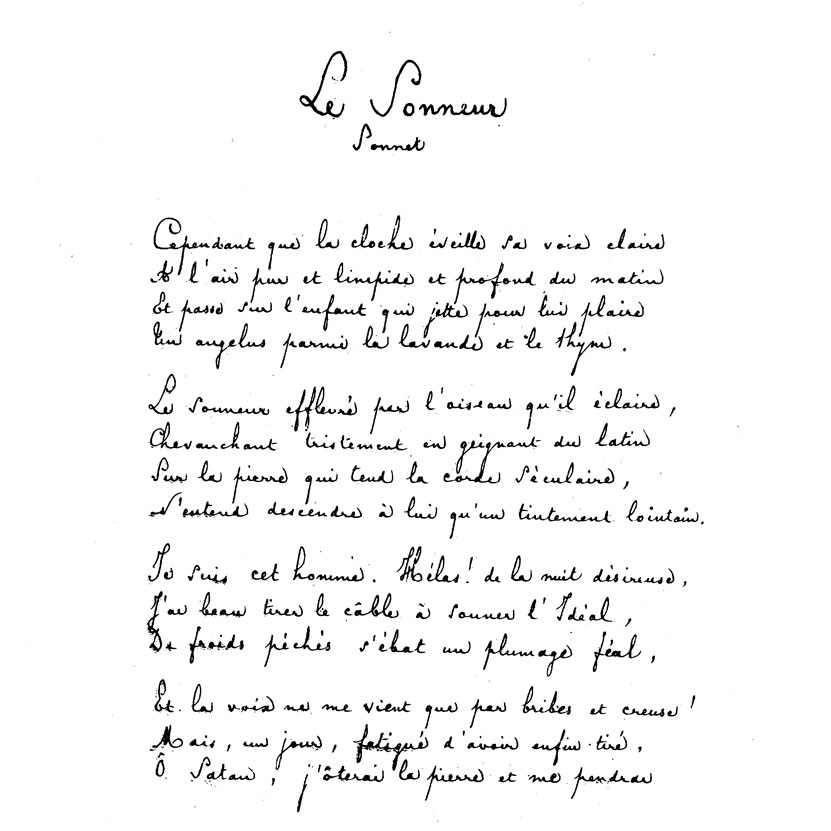 Le Sonneur
Sonnet
Cependant que la cloche éveille sa voix claire
A l'air pur et limpide et profond du matin
Et passe sur l'enfant qui jette pour lui plaire
Un angelus parmi la lavande et le thym.
Le sonneur effleuré par l'oiseau qu'il éclaire,
Chevauchant tristement en geignant du latin
Sur la pierre qui tend la corde séculaire,
N'entend descendre à lui qu'un tintement lointain.
Je suis cet homme. Hélas! de la nuit désireuse,
J'ai beau tirer le câble à sonner l'Idéal,
De froids péchés s'ébat un plumage féal,
Et la voix ne me vient que par bribes et creuse!
Mais, un jour, fatigué d'avoir enfin tiré,
Ô Satan, j'ôterai la pierre et me pendrai